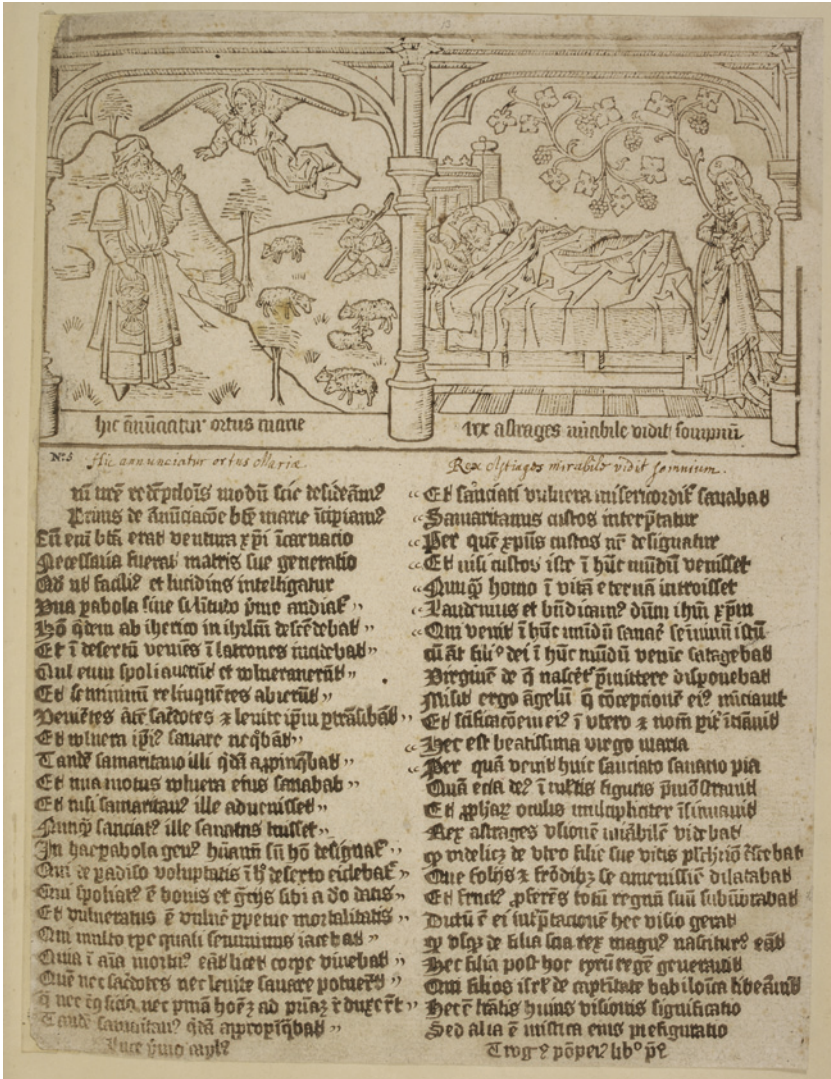 hic ānūciatur ortus marie
rex astrages mirabile vidit sompnū
Nº. 5
Hic annunciatur ortus Mariæ.
Rex Astiages mirabile vidit somnium.
modū scire desideam⁹
Primus de Anūciacōe btē marie īcipiam⁹
Cū eni btā erat ventura xp̄i īcarnacio
Necessaria fuerat matris sue generatio
Ad ut facili⁹ et lucidius intelligatur
Vna pabola siue silitudo pmo audiat̄ „
Hō qdem ab iherico in ihrlm̄ descēdebat „
Et ī desertū veniēs ī latrones incidebat „
Qui eum spoliauerūt et vulnerauerūt „
Et seminiuū relinquētes abierūt „
Veniētes āt sacdotes ⁊ leuite ipm ptrāsibāt „
Et vulnera ipi⁹ sanare neqbāt „
Tandē samaritano illi qdā appinqbat „
Et mia motus vulnera eius sanabat „
Et nisi samaritan⁹ ille aduenisset „
Nunq̄ sauciat⁹ ille sanatus fuisset „
In hac pabola gen⁹ hūanū siī hō designat̄ „
Qui de padiso voluptatis ī h⁹ deserto eiciebat̄ „
Qui spoliat⁹ ē bonis et grijs sibi a do datis „
Et vulneratus ē vulnē ppetue mortalitatis „
Qui multo tpe quasi seminiuus iacebat „
Quia ī aīa mortu⁹ erat licet corpe viuebat „
Quē nec sacdotes nec leuite sanare potuerūt „
Tandē samaritan⁹ qdā appropīqbat „
„ Et sauciati vulnera misericordit̄ sanabat
„ Samaritanus custos interptatur
„ Per quē xpiis custos nr̄ designatur
„ Et nisi custos iste ī hūc mūdū venisset
„ Nunq̄ homo ī vitā eternā introisset
„ Laudemus et bn̄dicam⁹ dūm ihm xp̄m
„ Qui venit ī hūc mūdū sanaē
cū āt fili⁹ dei ī hūc mūdū venire satagebat
Virginē de q̄ nasceret̄ pmittere disponebat
Misit ergo āgelū q̄ cōcepcionē ei⁹ nūciauit
Et scificacōem ei⁹ ī vtero ⁊ nom̄
„ Hec est beatissima virgo maria
„ Per quā venit huic sauciato sanatio pia
Quā etiā de⁹ ī multis figuris pmōstrauit
Et pphaꝝ oculis multipliciter īsinuauit
Rex astrages visionē mirabilē videbat
qᵛ videlicꝫ de vtero filie sue vitis pulchriō crescebat
Que folijs ⁊ frōdibꝫ se amenissiē dilatabat
Et fruct⁹ pferēs totū regnū suū subūbrabat
Dictū ē ei interptacionē hec visio gerat
qᵛ vsqꝫ de filia sua rex magn⁹ nascitur⁹ erat
Hec filia post hoc cyrū regē generauit
Qui filios isrl̄ de captītate babiloica liberauit
Hec ē lr̄alis huius visionis significatio
Sed alia ē mistica eius prefiguratio
Trog⁹ pōpei⁹ libº